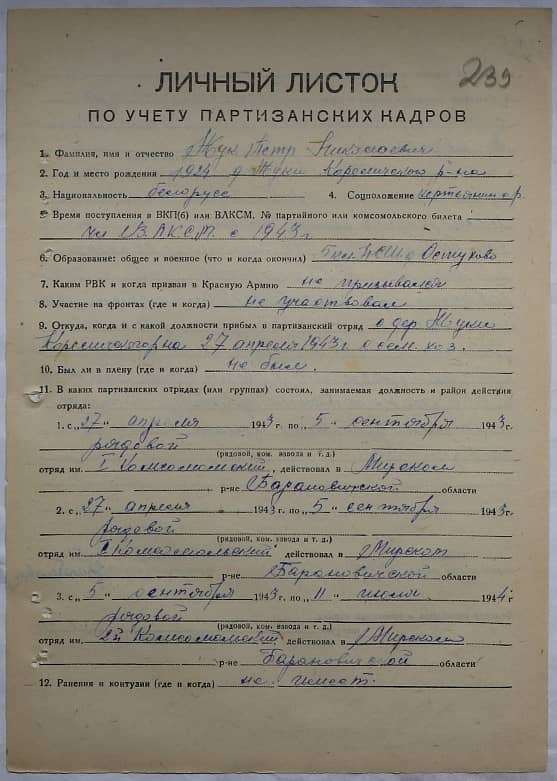 239
ЛИЧНЫЙ ЛИСТОК
ПО УЧЕТУ ПАРТИЗАНСКИХ КАДРОВ
1. Фамилия, имя и отчество Жук Петр Николаевич
2. Год и место рождения 1924 д Жуки Кореличского р-на
3. Национальность белорусс 4. Соцположение
5. Время поступления в ВКП(б) или ВЛКСМ, № партийного или комсомольского билета
чл ВЛКСМ с 1943 г
6. Образование: общее и военное (что и когда окончил)
7. Каким РВК и когда призван в Красную Армию не призывался
8. Участие на фронтах (где и когда) не участвовал
9. Откуда, когда и с какой должности прибыл в партизанский отряд с дер Жуки
27 апреля 1943 г. с
10. Был ли в плену (где и когда) не был.
11. В каких партизанских отрядах (или группах) состоял, занимаемая должность и район действия
отряда:
1. с „27" апреля 1943 г. по „5" сентября 1943 г.
рядовой
(рядовой, ком. взвода и т. д.)
отряд им. I Комсомольский, действовал в Мирском
р-не Барановичской области
2. с „27" апреля 1943 г. по „5" сентября 1943 г.
рядовой
(рядовой, ком. взвода и т. д.)
отряд им. I Комсомольский действовал в Мирском
р-не Барановичской области
3. с „5" сентября 1943 г. по „11" июля 1944 г
рядовой
(рядовой, ком. взвода и т. д.)
отряд им. 2й Комсомольский действовал в Мирском
р-не Барановичской области
12. Ранения и контузии (где и когда) не имеет.